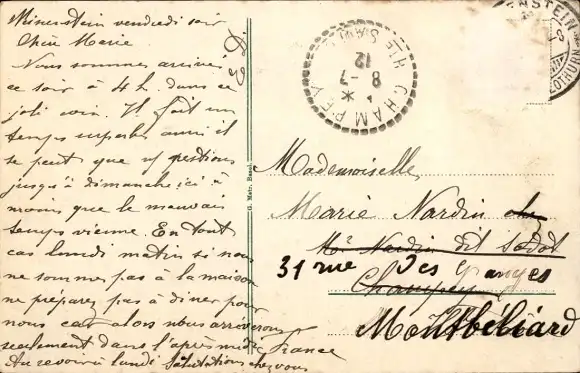 Minerstein vendredi soir
Chère Marie
Nous sommes arrivés
ce soir à 4 h. dans ce
joli coin. Il fait un
temps superbe aussi il
se peut que ns restions
jusqu'à dimanche ici à
moins que le mauvais
temps vienne. En tout
cas lundi matin si nous
ne sommes pas à la maison
ne préparez pas à dîner pour
nous car alors nous arriverons
seulement dans l'après midi
Au revoir à lundi Salutations chez vous
G. Metz, Basel.
CHAMPEY
HTE SAÔNE
8 -7
12
ENSTEIN
SOLOTHURN
Mademoiselle
Marie Nardin chez
Mr Nardin dit Sodot
31 rue Des Granges
Champey
Montbéliard
France